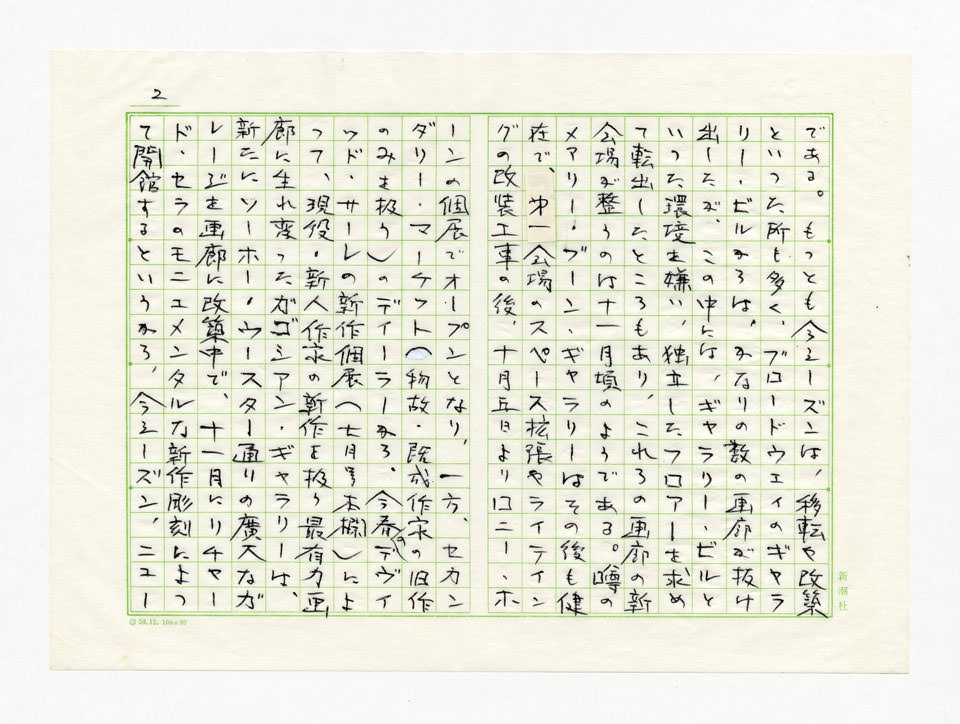 2
である。もっとも今シーズンは、移転や改築
といった所も多く、ブロードウェイのギャラ
リー・ビルからは、かなりの数の画廊が抜け
出したが、この中には、ギャラリー・ビルと
いった環境を嫌い、独立したフロアーを求め
て転出したところもあり、これらの画廊の新
会場が整うのは十一月頃のようである。噂の
メアリー・ブーン・ギャラリーはその後も健
在で、第一会場のスペース拡張やライティン
グの改装工事の後、十月五日よりロニー・ホ
ーンの個展でオープンとなり、一方、セカン
ダリー・マーケット(物故・既成作家の旧作
のみを扱う)のディーラーから、今春のデヴィ
ッド・サーレの新作個展(七月号本欄)によ
って、現役・新人作家の新作を扱う最有力画
廊に生れ変ったガゴシアン・ギャラリーは、
新たにソーホー・ウースター通りの廣大なガ
レージを画廊に改築中で、十一月にリチャー
ド・セラのモニュメンタルな新作彫刻によっ
て開館するというから、今シーズン、ニュー
新潮社
59.12. 100×80